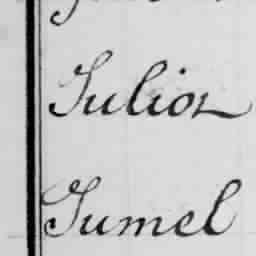 Julioz
Jumel